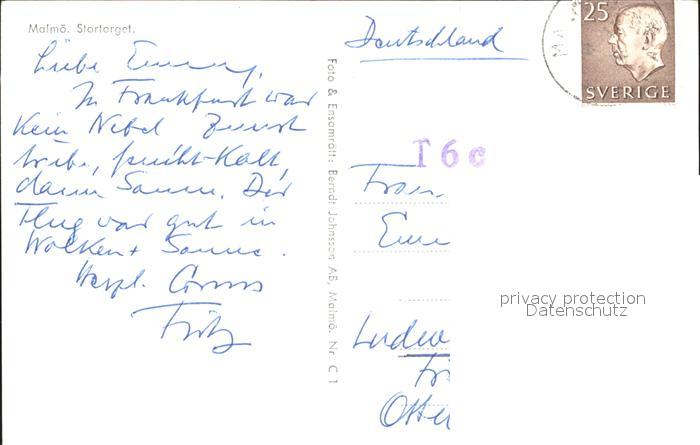 Malmö. Stortorget.
Liebe Emmy,
In Frankfurt war
kein Nebel zuerst
trübe, feucht-kalt,
dann Sonne. Der
Flug war gut in
Wolken + Sonne.
Herzl. Gruss
Fritz
Foto & Ensamrätt: Berndt Johnsson AB, Malmö. Nr. C 1
Deutschland
MA
25
SVERIGE
T6c
Frau
Emm
privacy protection
Datenschutz
Ludw
Fr
Otter